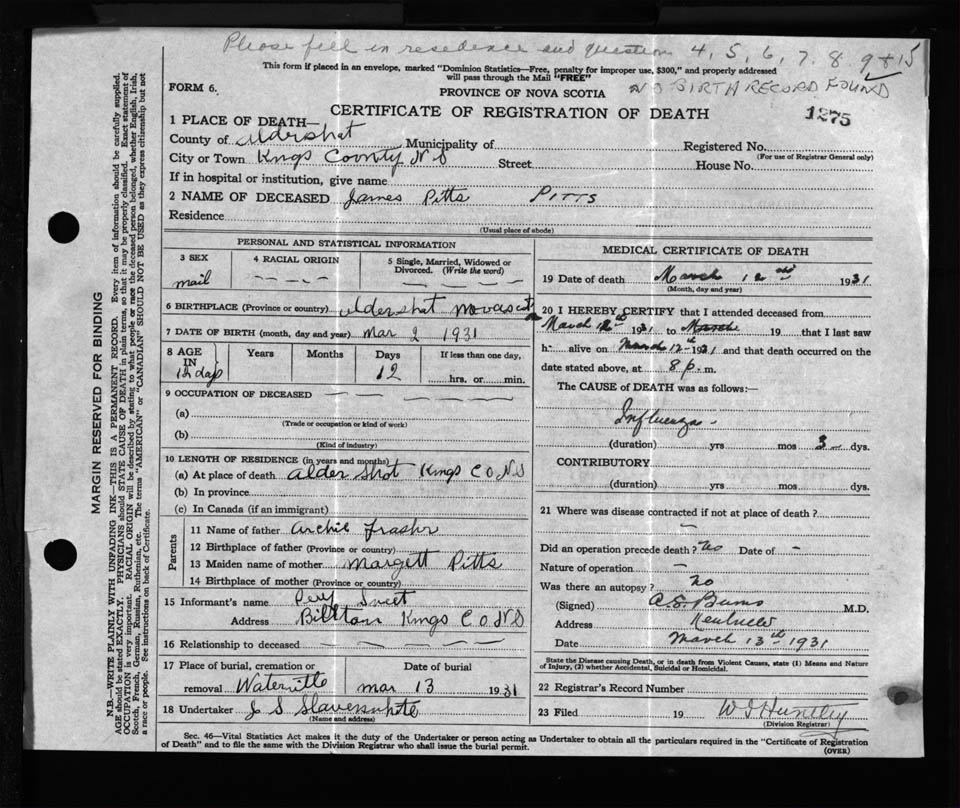 Please fill in resedence and question 4, 5, 6, 7, 8, 9 & 15
This form if placed in an envelope, marked "Dominion Statistics—Free, penalty for improper use, $300," and properly addressed
will pass through the Mail "FREE"
FORM 6.
PROVINCE OF NOVA SCOTIA
NO BIRTH RECORD FOUND
CERTIFICATE OF REGISTRATION OF DEATH
1275
1 PLACE OF DEATH—
County of Aldershat Municipality of Registered No.
(For use of Registrar General only)
City or Town Kngs County N S Street House No.
If in hospital or institution, give name
2 NAME OF DECEASED James Pitts PITTS
Residence
(Usual place of abode)
PERSONAL AND STATISTICAL INFORMATION
3 SEX
mail
4 RACIAL ORIGIN
— — — —
5 Single, Married, Widowed or
Divorced. (Write the word)
— — — —
6 BIRTHPLACE (Province or country) Aldershat
7 DATE OF BIRTH (month, day and year) Mar 2 1931
8 AGE
IN
12 days
Years
Months
Days
12
If less than one day,
hrs. or min.
9 OCCUPATION OF DECEASED — — — —
(a)
(Trade or occupation or kind of work)
(b)
(Kind of industry)
10 LENGTH OF RESIDENCE (in years and months)
(a) At place of death Alder Shot Kings C O N S
(b) In province
(c) In Canada (if an immigrant)
Parents
11 Name of father Archie Frasher
12 Birthplace of father (Province or country)
13 Maiden name of mother Margett Pitts
14 Birthplace of mother (Province or country)
15 Informant's name Pery Sweet
Address Billtan Kings C O N S
16 Relationship to deceased — — — —
17 Place of burial, cremation or Date of burial
removal Waterville mar 13 1931
18 Undertaker J S
(Name and address)
MEDICAL CERTIFICATE OF DEATH
19 Date of death March 12 nd 1931
(Month, day and year)
20 I HEREBY CERTIFY that I attended deceased from
March 12th 1931 to March 19 that I last saw
h alive on March 12th 1931 and that death occurred on the
date stated above, at 8 p. m.
The CAUSE of DEATH was as follows:—
Influenza -
(duration) yrs mos 3 dys.
CONTRIBUTORY
(duration) yrs mos dys.
21 Where was disease contracted if not at place of death?
—
Did an operation precede death? No Date of -
Nature of operation —
Was there an autopsy? No
(Signed) A.S. Burns M.D.
Address Kentville
Date March 13th 1931
State the Disease causing Death, or in death from Violent Causes, state (1) Means and Nature
of Injury, (2) whether Accidental, Suicidal or Homicidal.
22 Registrar's Record Number
23 Filed 19 W S Huntley
(Division Registrar)
Sec. 46—Vital Statistics Act makes it the duty of the Undertaker or person acting as Undertaker to obtain all the particulars required in the "Certificate of Registration
of Death" and to file the same with the Division Registrar who shall issue the burial permit.
(OVER)
MARGIN RESERVED FOR BINDING
N.B.—WRITE PLAINLY WITH UNFADING INK—THIS IS A PERMANENT RECORD. Every item of information should be carefully supplied.
AGE should be stated EXACTLY. PHYSICIANS should STATE CAUSE OF DEATH in plain terms, so that it may be properly classified. Exact statement of
OCCUPATION is very important. RACIAL ORIGIN will be described by stating to what people or race the deceased person belonged, whether English, Irish,
Scotch, French, German, Russian, Ruthenian, etc. The terms "AMERICAN" or "CANADIAN" SHOULD NOT BE USED as they express citizenship but not
a race or people. See instructions on back of Certificate.